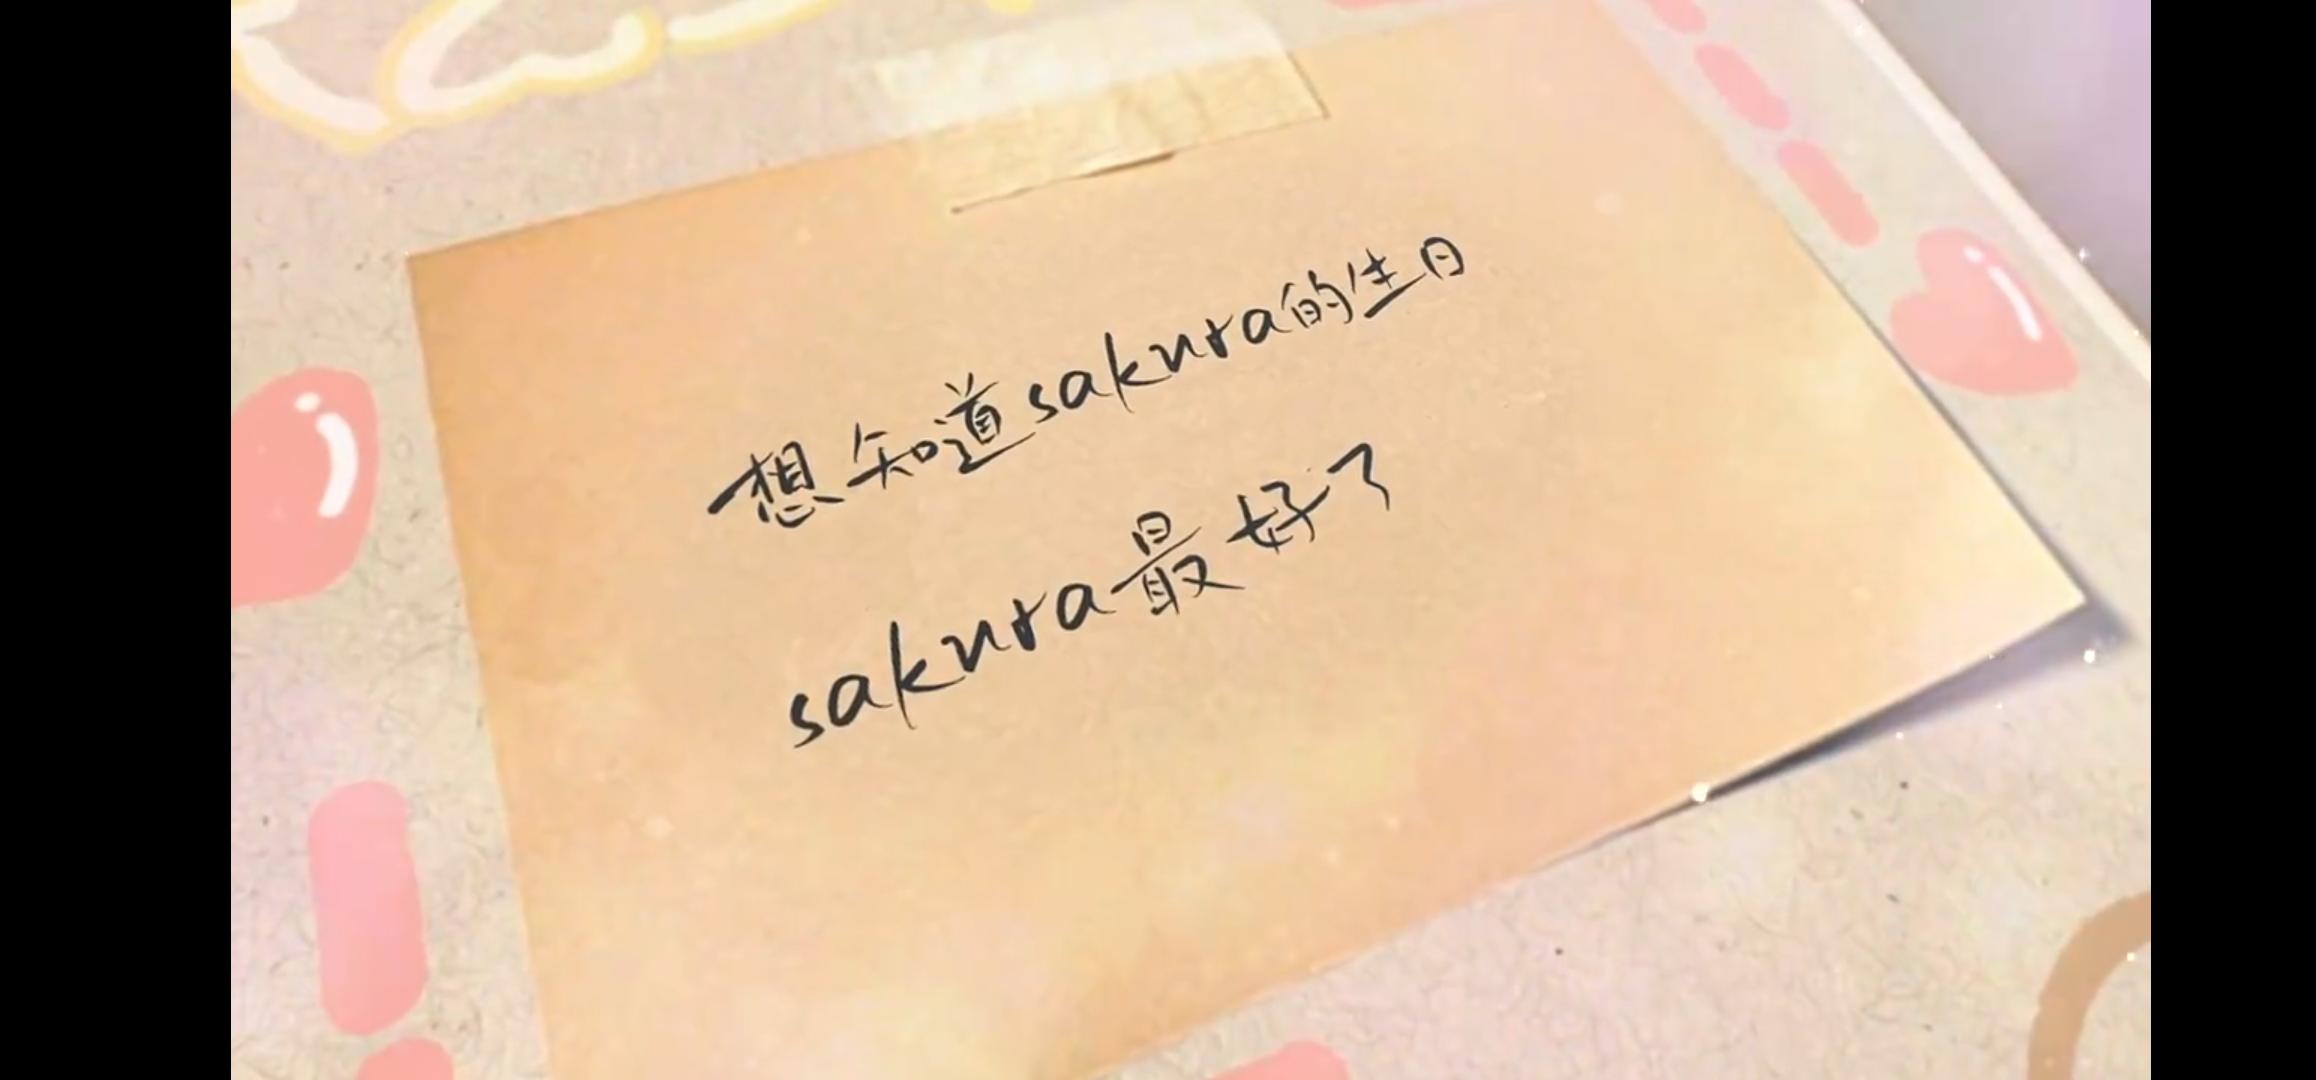 想知道sakura的生日
sakura最好了